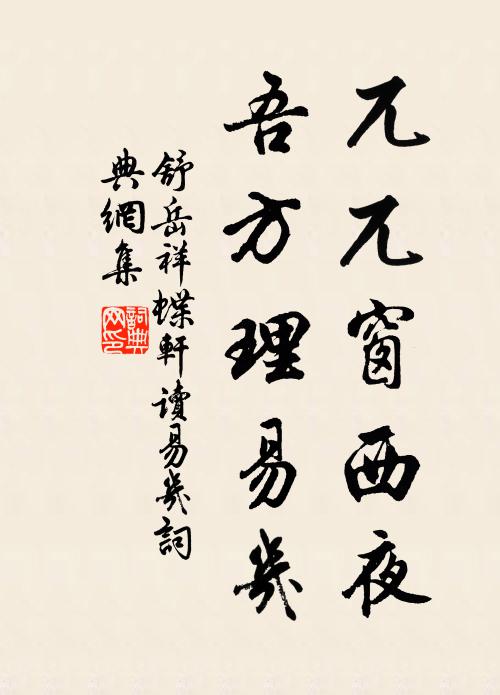 兀兀窗西夜
吾方理易几
舒岳祥蝶軒讀易几詞
典網集
詞典网印